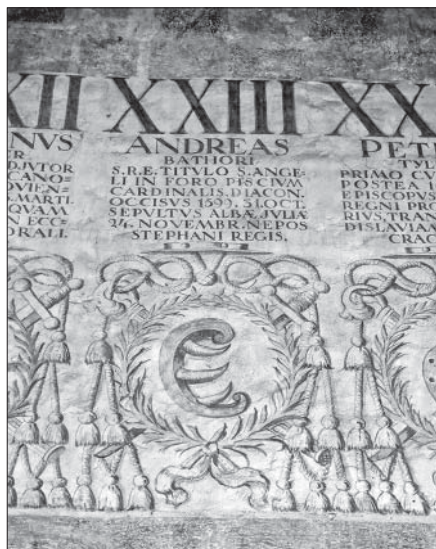 XII
NUS
R.
DJUTOR
CANO=
OVIEN=
MARTI.
QUAM
ECC=
DRALI.
XXIII
ANDREAS
BATHORI
S.R.E. TITULO S. ANGE-
LI IN FORO PISCIUM
CARDINALIS, DIACON.
OCCISUS 1599. 31. OCT.
SEPULTUS ALBÆ JULIÆ
24. NOVEMBR. NEPOS
STEPHANI REGIS.
XX
PET
TYL
PRIMO CV
POSTEA I
EPISCOPUS
REGNI PR
RIUS, TRAN
DISLAVIAM
CRAC